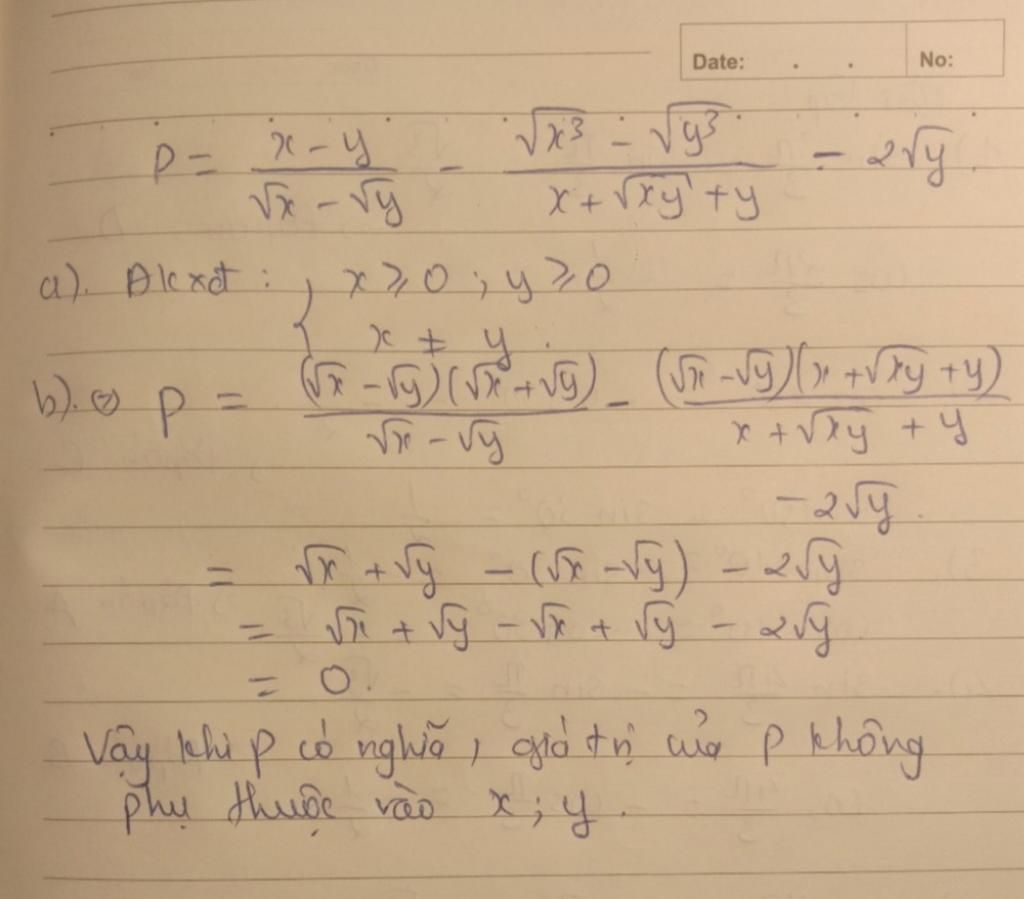 Date: . . No:
P = \frac{x - y}{\sqrt{x} - \sqrt{y}} - \frac{\sqrt{x^3} - \sqrt{y^3}}{x + \sqrt{xy} + y} - 2\sqrt{y}.
a). Đkxđ : { x ≥ 0 ; y ≥ 0
x ≠ y .
b). ⇔ P = \frac{(\sqrt{x} - \sqrt{y})(\sqrt{x} + \sqrt{y})}{\sqrt{x} - \sqrt{y}} - \frac{(\sqrt{x} - \sqrt{y})(x + \sqrt{xy} + y)}{x + \sqrt{xy} + y}
- 2\sqrt{y}.
= \sqrt{x} + \sqrt{y} - (\sqrt{x} - \sqrt{y}) - 2\sqrt{y}
= \sqrt{x} + \sqrt{y} - \sqrt{x} + \sqrt{y} - 2\sqrt{y}
= 0.
Vậy khi P có nghĩa, giá trị của P không
phụ thuộc vào x ; y .